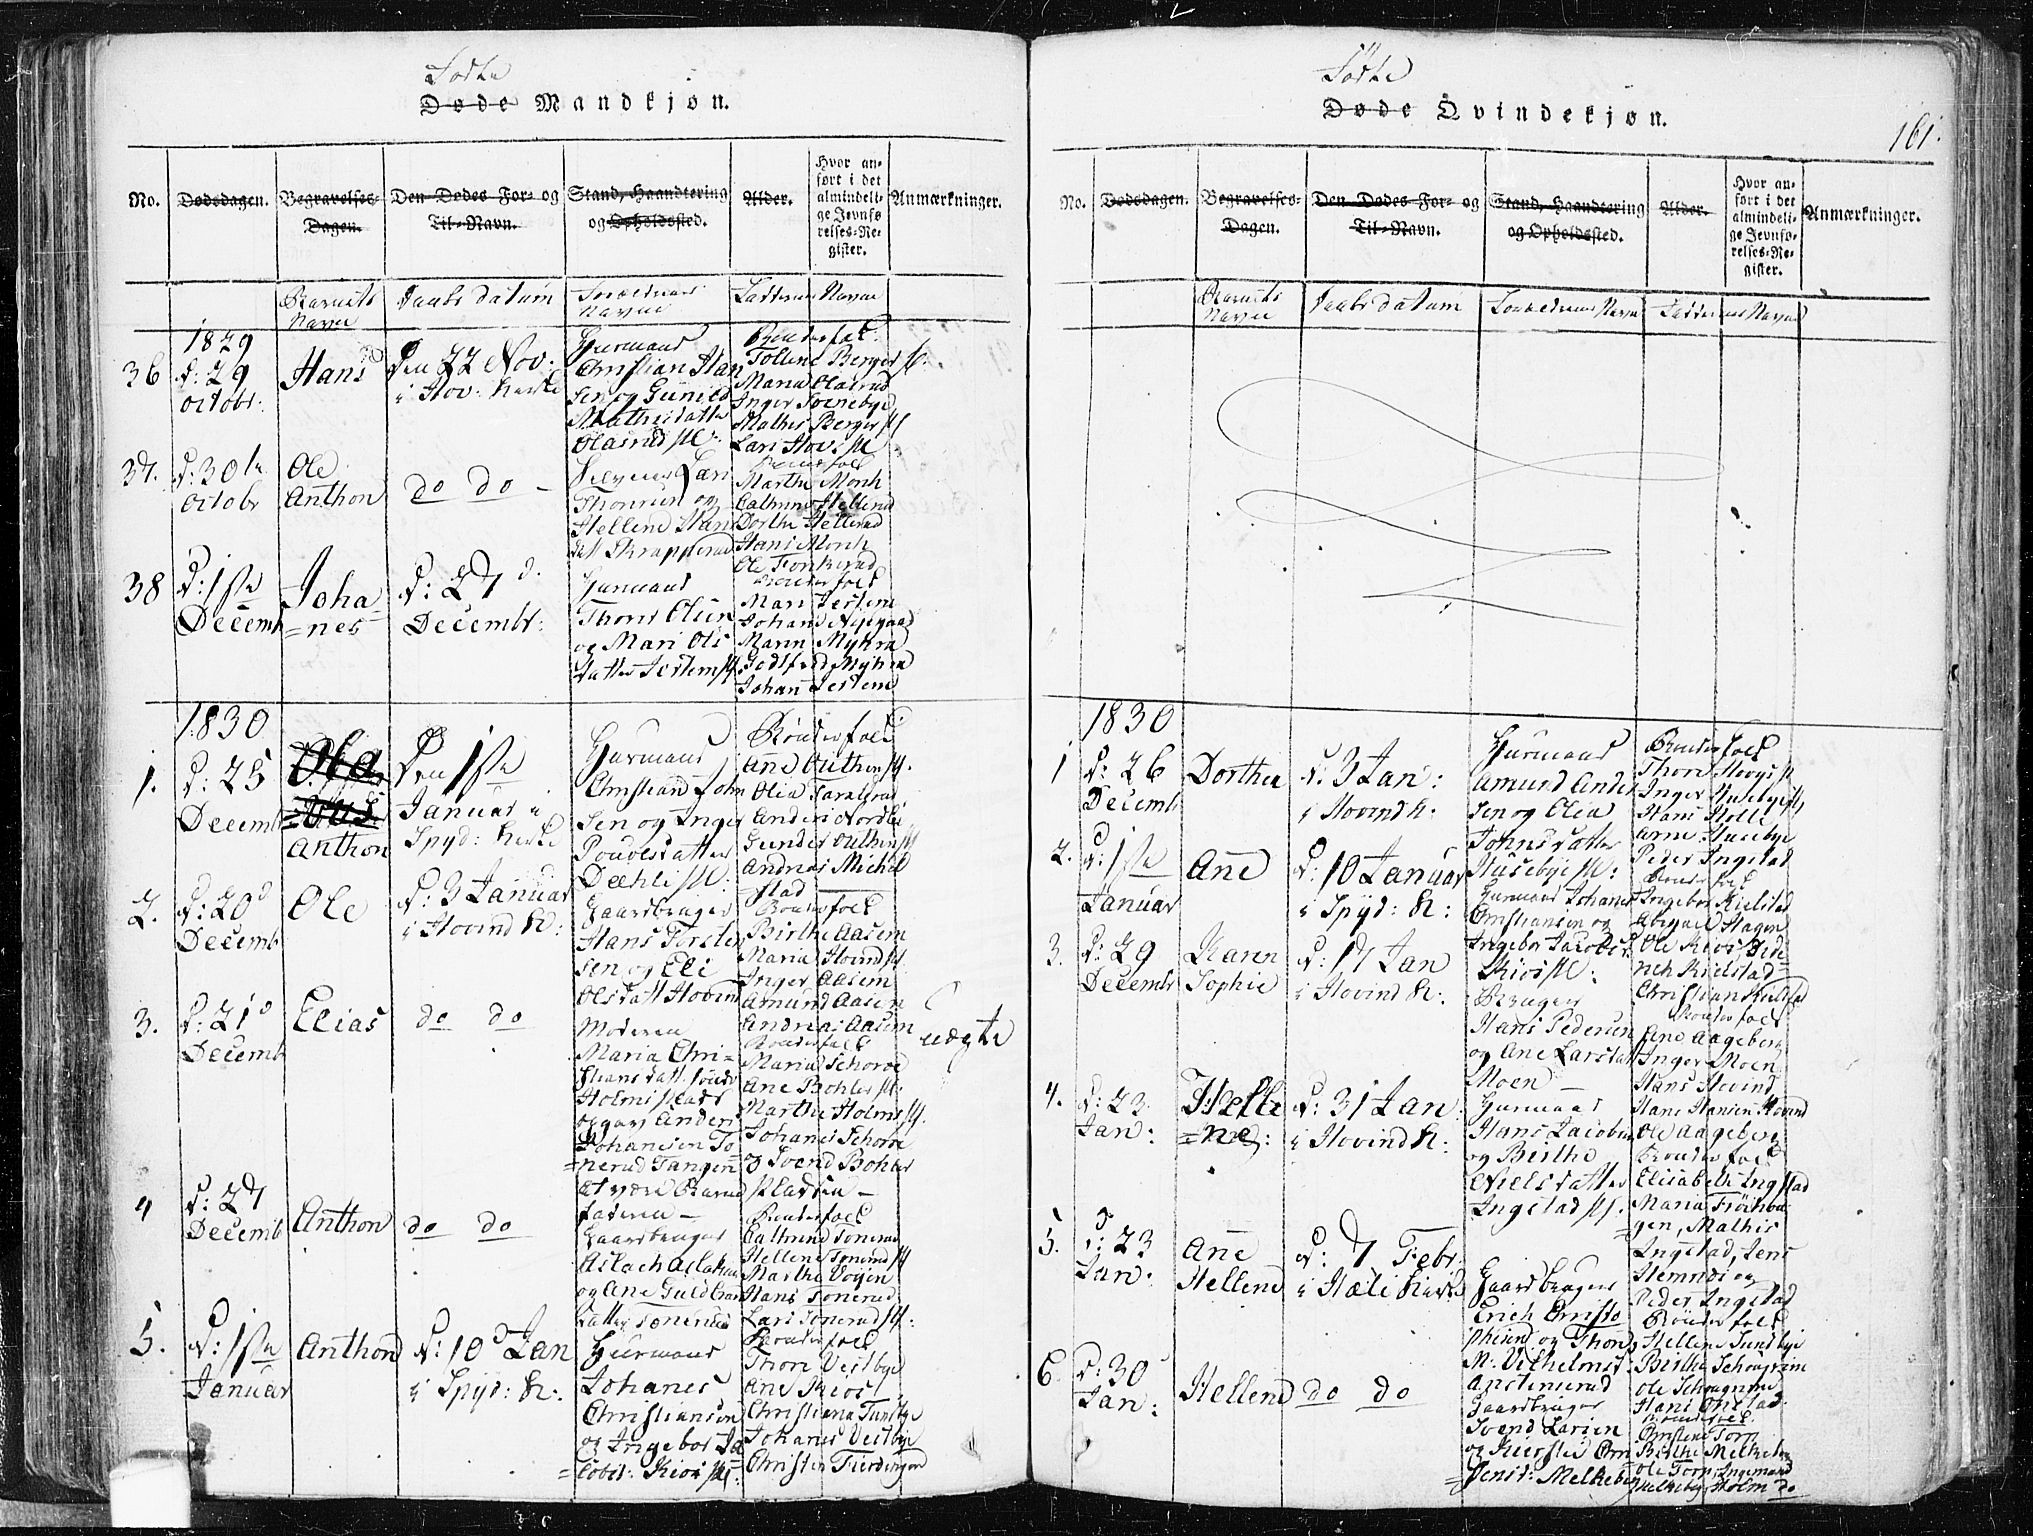 Fødte
Døde Mandkjøn.
No.
Dødsdagen.
Begravelses-
Dagen.
Den Dødes For- og
Til-Navn.
Stand, Haandtering
og Opholdssted.
Alder.
Hvor an-
ført i det
almindeli-
ge Jevnfø-
relses-Re-
gister.
Anmærkninger.
Barnets
Navne
Daabs datum
Forældrenes
Navne
Faddernes Navne
1829
36
d: 29
Octobr:
Hans
Den 22 Nov:
i Hov: Kirke
Huusmand
Christian Han
sen og Gunild
Mathisdatter
Olasrud
Bondefolk:
Tollene Berger
Maria Olasrud
Inger Toenebye
Mathis Berger
Lars Hov:
37.
d: 30te
Octobr
Ole
Anthon
do do -
Lars
Thorsen og
Hellene Hans
datt Skrapperud
Bondefolk
Marthe Monh
Cathrine Hellerud
Dorthe Hellerud
Hans Monh
Ole Fonkerud
38
d: 1ste
Decemb
Joha
=nes
d: 27 d.
Decembr:
Huusmand
Thorer Olsen
og Mari Ols
datter Jestem
Bondefolk
Mari Jestem
Johane Nygaard
Maren Myhra
Godtfred Myhra
Johan Jestem
1830
1.
d: 25
Decemb
Anthon
Den 1ste
Januar i
Spyd: Kirke
Huusmand
Christian John
sen og Inger
Pouelsdatter
Dæhli
Bondefolk
Ane Outhen
Olia Taralsrud
Anders Nordbi
Gunder Outhen
Andreas Michel
stad
2.
d: 20
Decemb
Ole
d: 3 Januar
i Hovind K:
Gaardbruger
Hans Torster
sen og Eli
Olsdatt Hovind
Bondefolk
Birthe Aasem
Maria Hovind
Inger Aasem
Amund Aasen
Andreas Aasem
3.
d: 21
Decemb
Elias
do do
Moderen
Maria Chri=
stiansdatt
Holms
opgav Anders
Johanesen To
=nerud Tangen
at være Barne
faderen -
Bondefolk
Maria Schorve
Ane Bohler
Marthe Holms
Johanes Schorve
og Svend Bohler
Pladsen -
uægte
4
d: 27
Decemb
Anthon
do do
Gaardbruger
Aslach Aslaksen
og Ane Guldbran
datter Tonerud
Bondefolk
Cathrine Tonerud
Hellene Tonerud
Marthe Voyen
Hans Tonerud
Lars Tonerud
5.
d: 1ste
Januar
Anthon
d: 10 Jan
i Spyd: K:
Huusmand
Johanes
Christiansen
og Ingebor Ja
=cobsd: Kios
Bondefolk
Thore Vestbye
Ane Kios
Christiana Tunbye
Johanes Vestbye
Christen Fierdingen
Fødte
Døde Qvindekjøn.
161.
No.
Dødsdagen.
Begravelses-
Dagen.
Den Dødes For- og
Til-Navn.
Stand, Haandtering
og Opholdssted.
Alder.
Hvor an-
ført i det
almindeli-
ge Jevnfø-
relses-Re-
gister.
Anmærkninger.
Barnets
Navne
Daabs datum
Forældrenes Navne
Faddernes Navne
1830
1
d: 26
Decemb
Dorthea
d: 3 Jan:
i Hovind K:
Huusmand
Amund Ander
sen og Olia
Johnsdatter
Husebye
Bondefolk
Thore
Inger Husebye
Hans Holle
Arne Husebye
Peder Ingstad
2.
d: 1ste
Januar
Ane
d: 10 Januar
i Spyd: K:
Huusmand Johanes
Christiansen og
Ingebor Jacobsd
Kios
Bondefolk
Ingebor Kielstad
Abigael Hagen
Ole Kios, Hen
rich Kielstad
Christian Kielstad
3.
d: 29
Decembr
Karen
Sophie
d: 17 Jan
i Hovind K:
Bruger
Hans Pedersen
og Ane Larsdat
Moen -
Bondefolk
Ane Aageberg
Inger Moen
Hans Hovind
Hans Hansen Hovind
Ole Aageberg
4.
d: 23
Jan:
Helle
=ne:
d: 31 Jan:
i Hovind K:
Huusmand
Hans Jacobsen
og Birthe
Nielsdatter
Ingstad
Bondefolk
Elisabeth Ingstad
Maria Frøshou
gen, Mathis
Ingstad, Jens
Hemnes og
Peder Ingstad
5.
d: 23
Jan:
Ane
Hellene
d: 7 Febr:
i Hæli Kirke
Gaardbruger
Erich Christo
phersen og Thore
M: Vilhelmsd
Anstensrud
Bondefolk
Hellene Sundbye
Birthe Schougrim
Ole Schougrim
Hans Onstad
6.
d: 30
Jan:
Hellene
do do
Gaardbruger
Svend Larsen
og Kiersti Chri
=stensd: Melkeber
Bondefolk
Christene Torp
Birthe Melkeber
Ole Torp, Ingemand
Melkeby, Holm do